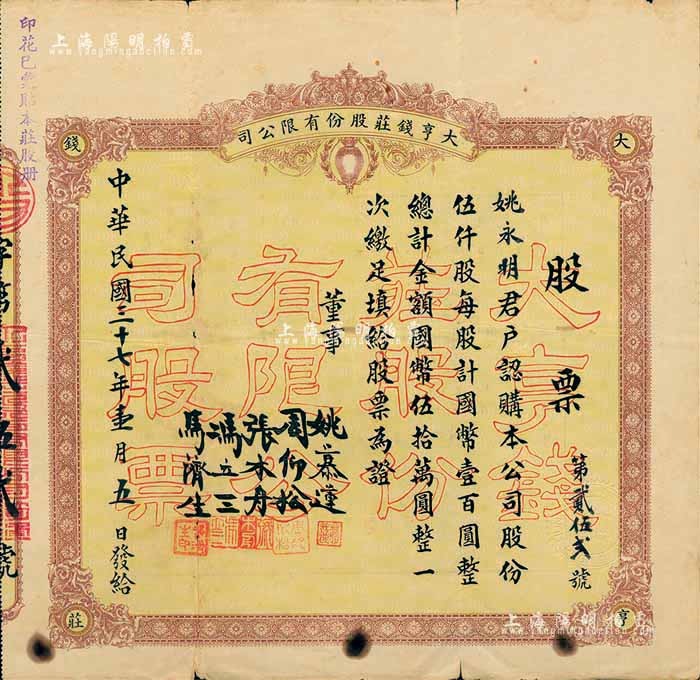 上海陽明拍賣
www.yangmingauction.com
大亨錢莊股份有限公司
大
亨
錢
莊
股票
第貳伍弍號
姚永明君戶認購本公司股份
伍仟股每股計國幣壹百圓整
總計金額國幣伍拾萬圓整一
次繳足填給股票為證
董事
姚慕蓮
周仰松
張木丹
馮立三
馬濟生
中華民國三十七年壹月五日發給
大亨錢
莊股份
有限公
司股票
上海陽明拍賣
印花已繳貼本莊股册
字第貳伍貳號
上海陽明拍賣